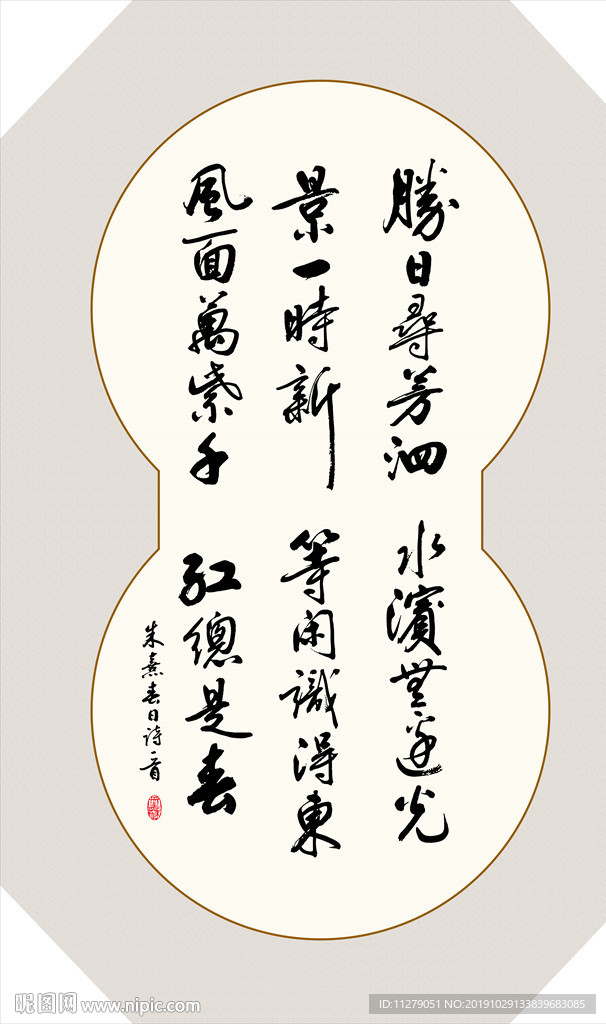 勝日尋芳泗水濱無邊光
景一時新等闲識得東
風面萬紫千紅總是春
朱熹春日詩一首
昵图网 www.nipic.com
ID:11279051 NO:20191029133839683085